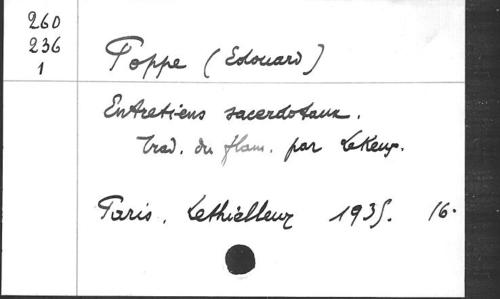 260
236
1
Poppe (Edouard)
Entretiens sacerdotaux.
Trad. du flam. par Lekeux.
Paris, Lethielleux 1935. 16.